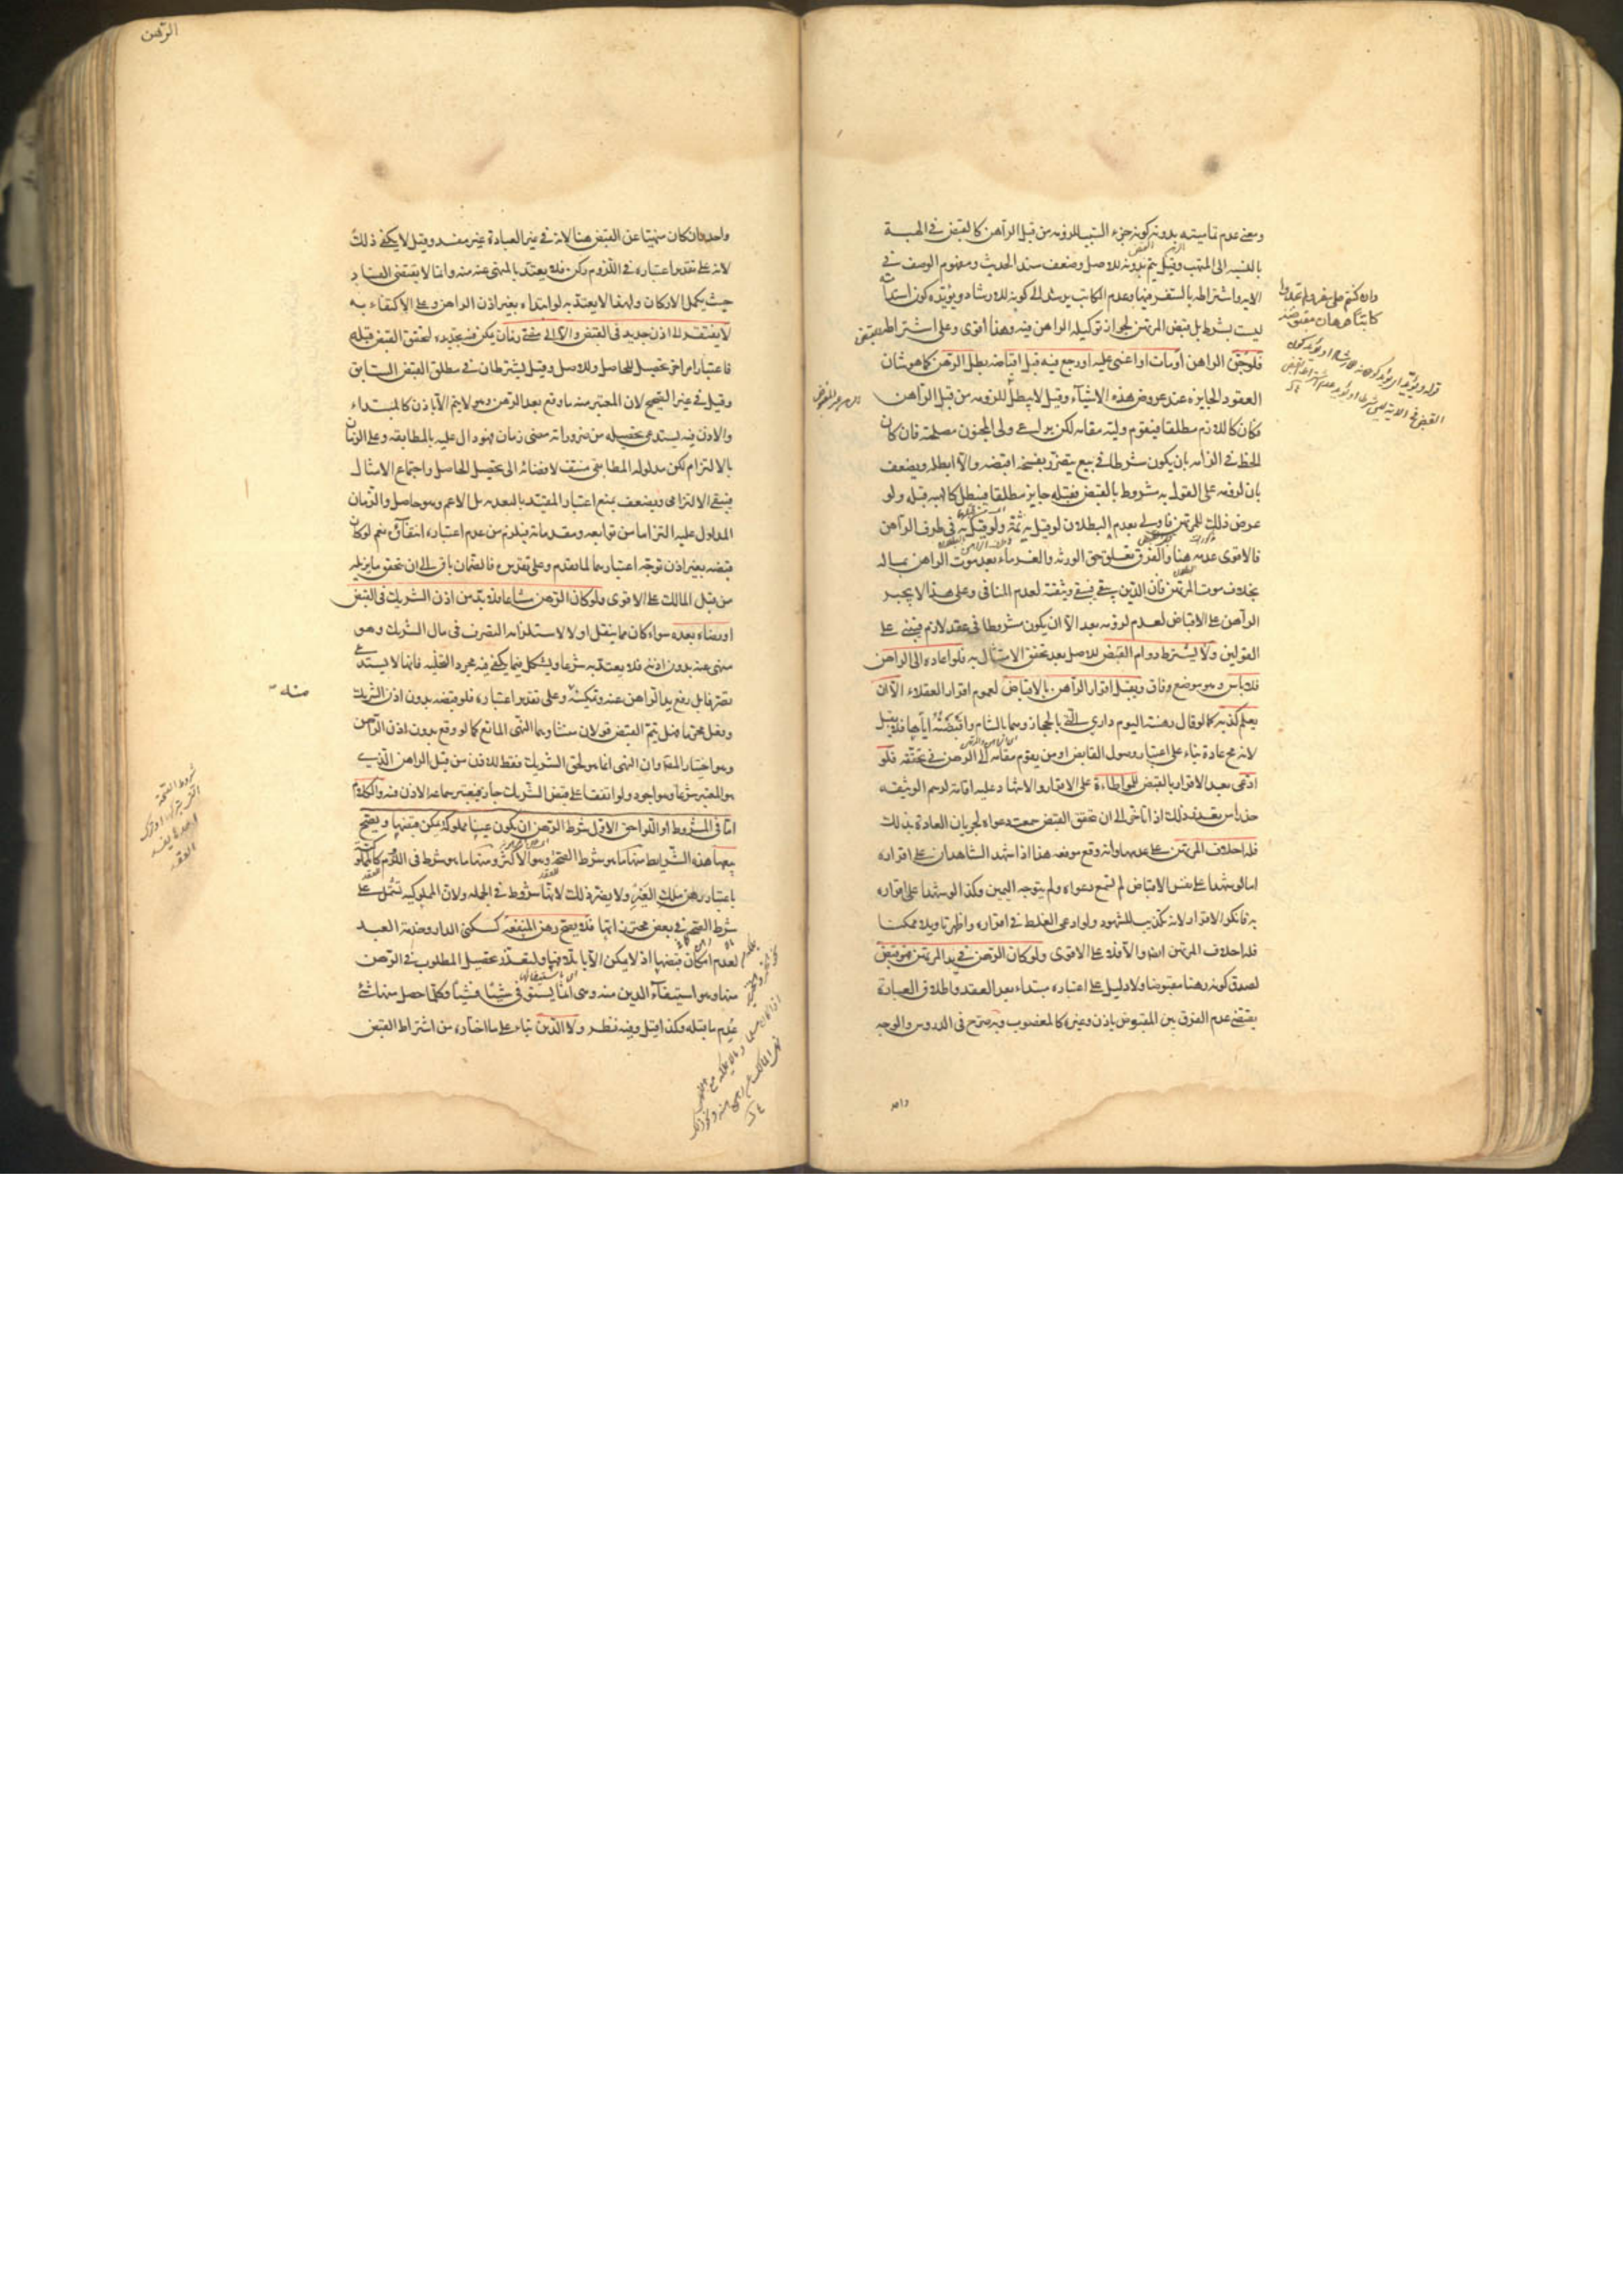 ومعنى عدم تماميته بدونه كونه جزء السبب للزومه من قبل الراهن كالقبض في الهبة
بالنسبه الى المتهب وقيل يتم بدونه للاصل وضعف سند الحديث ومفهوم الوصف في
الايه واشتراطه بالسفر فيها وعدم الكاتب يرشد الى كونه للارشاد ويؤيده كون استدامته
ليست بشرط بل قبض المرتهن لجواز توكيله الراهن فيه وهذا اقوى وعلى اشتراطه القبض
فلو جن الراهن او مات او اغمى عليه او رجع فيه قبل اقباضه بطل الرهن كما هو شان
العقود الجايزه عند عروض هذه الاشيآء وقيل لا يبطل للزومه من قبل الراهن
فكان كاللازم مطلقا فيقوم وليه مقامه لكن يراعى ولى المجنون مصلحته فان كان
الحظ في الزامه بان يكون شرطا في بيع يتضرر بفسخه اقبضه والا ابطله ويضعف
بان لزومه على القول به مشروط بالقبض فقبله جايز مطلقا فيبطل كالهبه قبله ولو
عرض ذلك للمرتهن فاولى بعدم البطلان لو قيل به ثمة ولو قيل به في طرف الراهن
فالاقوى عدمه هنا والفرق تعلق حق الورثه والغرماء بعد موت الراهن بماله
بخلاف موت المرتهن فان الدين يبقى فتبقى وثيقته لعدم المنافى وعلى هذا لا يجبر
الراهن على الاقباض لعدم لزومه بعد الا ان يكون مشروطا في عقد لازم فيبنى على
القولين ولا يشترط دوام القبض للاصل بعد تحقق الامتثال به فلو اعاده الى الراهن
فلا باس وهو موضع وفاق ويقبل اقرار الراهن بالاقباض لعموم اقرار العقلاء الا ان
يعلم كذبه كما لو قال رهنته اليوم داري التي بالحجاز وهما بالشام واقبضته اياها فلا يقبل
لانه محال عادة بناء على اعتبار وصول القابض او من يقوم مقامه الى الرهن في تحققه فلو
ادعى بعد الاقرار بالقبض المواطاءة على الاقرار والاشهاد عليه اقامة لرسم الوثيقه
حذرا من تعذر ذلك اذا تاخر الى ان يتحقق القبض سمعت دعواه لجريان العادة بذلك
فله احلاف المرتهن على عدمها وانه وقع موقعه هذا اذا شهد الشاهدان على اقراره
اما لو شهدا على نفس الاقباض لم تسمع دعواه ولم يتوجه اليمين وكذا لو شهدا على اقراره
به فانكر الاقرار لانه تكذيب للشهود ولو ادعى الغلط في اقراره واظهر تاويلا ممكنا
فله احلاف المرتهن ايضا والا فلا على الاقوى ولو كان الرهن في يد المرتهن فهو قبض
لصدق كونه رهنا مقبوضا ولا دليل على اعتباره مبتداء بعد العقد واطلاق العبارة
يقتضى عدم الفرق بين المقبوض باذن وغيره كالمغصوب وبه صرح في الدروس والوجه
واحد
وان كنتم على سفر ولم تجدوا
كاتبا فرهان مقبوضة
الرهن
واحد وان كان منهيا عن القبض هنا لانه في غير العبادة غير مفسد وقيل لا يكفى ذلك
لانه على تقدير اعتباره في اللزوم ركن فلا يعتد بالمنهى عنه منه وانما لا يقتضى الفساد
حيث يكمل الاركان ولهذا لا يعتد به لو ابتداء بغير اذن الراهن وعلى الاكتفاء به
لا يفتقر الى اذن جديد في القبض ولا الى مضى زمان يمكن فيه تجديده لتحقق القبض قبله
فاعتبار امر اخر تحصيل للحاصل وللاصل وقيل يشترطان في مطلق القبض السابق
وقيل في غير الصحيح لان المعتبر منه ما وقع بعد الرهن وهو لا يتم الا باذن كالمبتداء
والاذن فيه يستدعى تحصيله من ضروراته مضى زمان فهو دال عليه بالمطابقه وعلى الزمان
بالالتزام لكن مدلوله المطابقى منتف لافضائه الى تحصيل الحاصل واجتماع الامثال
فيبقى الالتزامى ويضعف بمنع اعتبار المقيد بالبعديه بل الاعم وهو حاصل والزمان
المدلول عليه التزاما من توابعه ومقدماته فيلزم من عدم اعتباره انتفاؤه نعم لو كان
قبضه بغير اذن توجه اعتبارهما لما تقدم وعلى تقديره فالضمان باق الى ان يتحقق ما يزيله
من قبل المالك على الاقوى ولو كان الرهن مشاعا فلا بد من اذن الشريك في القبض
او رضاه بعده سواء كان مما ينقل او لا لاستلزامه التصرف في مال الشريك وهو
منهى عنه بدون اذنه فلا يعتد به شرعا ويشكل فيما يكفى فيه مجرد التخليه فانها لا يستدعى
تصرفا بل رفع يد الراهن عنه وتمكينه وعلى تقدير اعتباره فلو قبضه بدون اذن الشريك
وفعل محرما فهل يتم القبض قولان منشاوهما النهى المانع كما لو وقع بدون اذن الراهن
وهو اختيار المص وان النهى انما هو لحق الشريك فقط للاذن من قبل الراهن الذي
هو المعتبر شرعا وهو اجود ولو اتفقا على قبض الشريك جاز فيعتبر سماعه الاذن فيه والكلام
اما في الشروط او اللواحق الاول شرط الرهن ان يكون عينا مملوكة يمكن قبضها ويصح
بيعها هذه الشرايط منها ما هو شرط الصحة وهو الاكثر ومنها ما هو شرط في اللزوم كالمملوكية
باعتبار رهن ملك الغير ولا يضر ذلك لانها شروط في الجمله ولان المملوكيه تشتمل على
شرط الصحه في بعض محترزاتها فلا يصح رهن المنفعه كسكنى الدار وخدمة العبد
لعدم امكان قبضها اذ لا يمكن الا باتلافها ولتعذر تحصيل المطلوب في الرهن
منها وهو استيفآء الدين منه وهى انما يستوفى شيئا فشيئا وكلما حصل منها شئ
عدم ما قبله وكذا قيل وفيه نظر ولا الدين بناء على ما اختاره من اشتراط القبض
منه
شروط الصحة
العقد